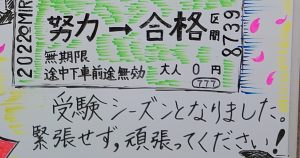 2022.◎MIR
努力→合格
区間
8739
無期限
途中下車前途無効
大人 0円
777
受験シーズンとなりました。
緊張せず,頑張ってください!